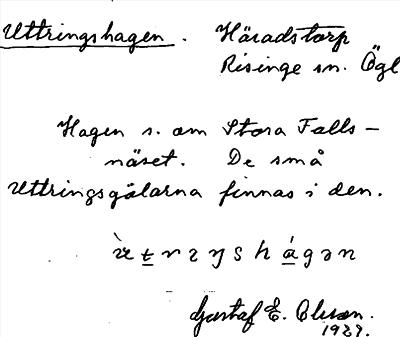 Uttringshagen. Häradstorp
Risinge sn. Ögl
Hagen s. om Stora Falls-
näset. De små
Uttringsgölarna finnas i den.
Gustaf E. Olsson.